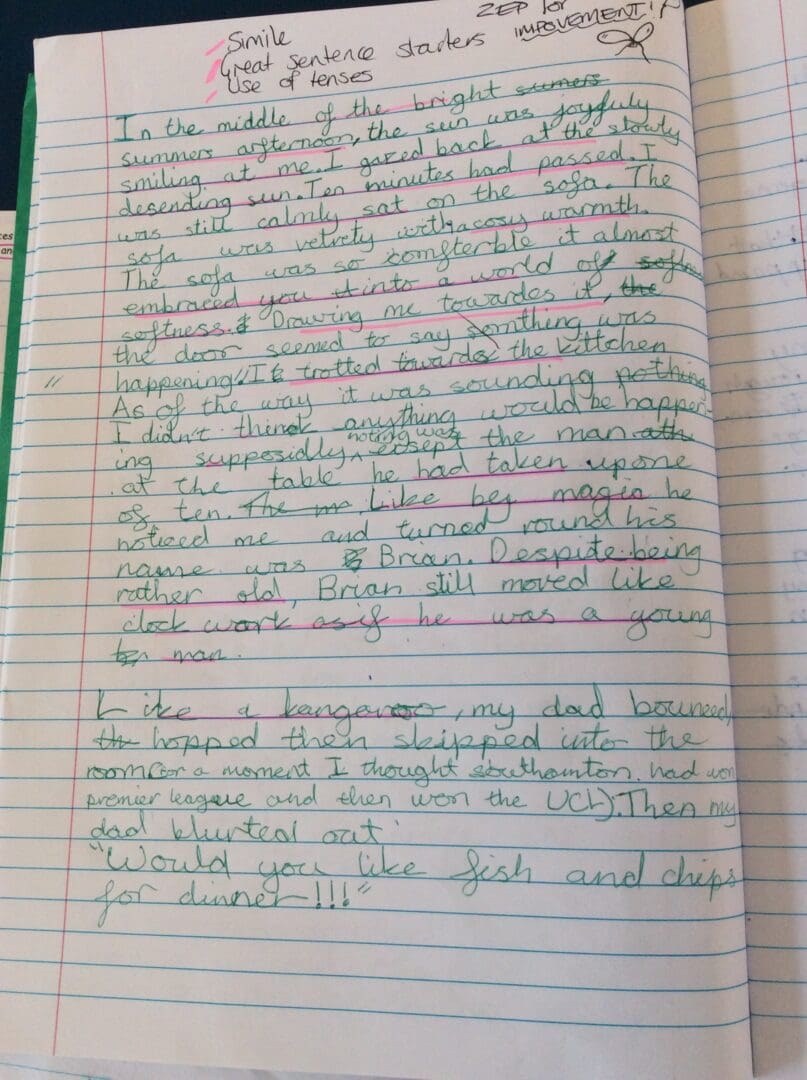 Simile
Great sentence starters
Use of tenses
ZEP for
IMPOVEMENT!
In the middle of the bright sumers
summers arfternoon, the sun was joyfuly
smiling at me. I gazed back at the slowly
desending sun. Ten minutes had passed. I
was still calmly sat on the sofa. The
sofa was velvety with a cosy warmth.
The sofa was so comfterble it almost
embraced you into a world of
softness. Drawing me towardes it, the
the door seemed to say somthing was
happening". I trotted towardes the kittchen
As of the way it was sounding nothing
I didn't think anything would be happen-
ing supposidly noting was exsept the man
at the table he had taken up one
of ten. The Like bey magic he
noticed me and turned round his
name was Brian. Despite being
rather old, Brian still moved like
clock work as if he was a young
man.
Like a kangaroo, my dad bounced,
th hopped then skipped into the
room (for a moment I thought southamton had won
premier league and then won the UCL). Then my
dad blurted out
"Would you like fish and chips
for dinner!!!"
ces
an